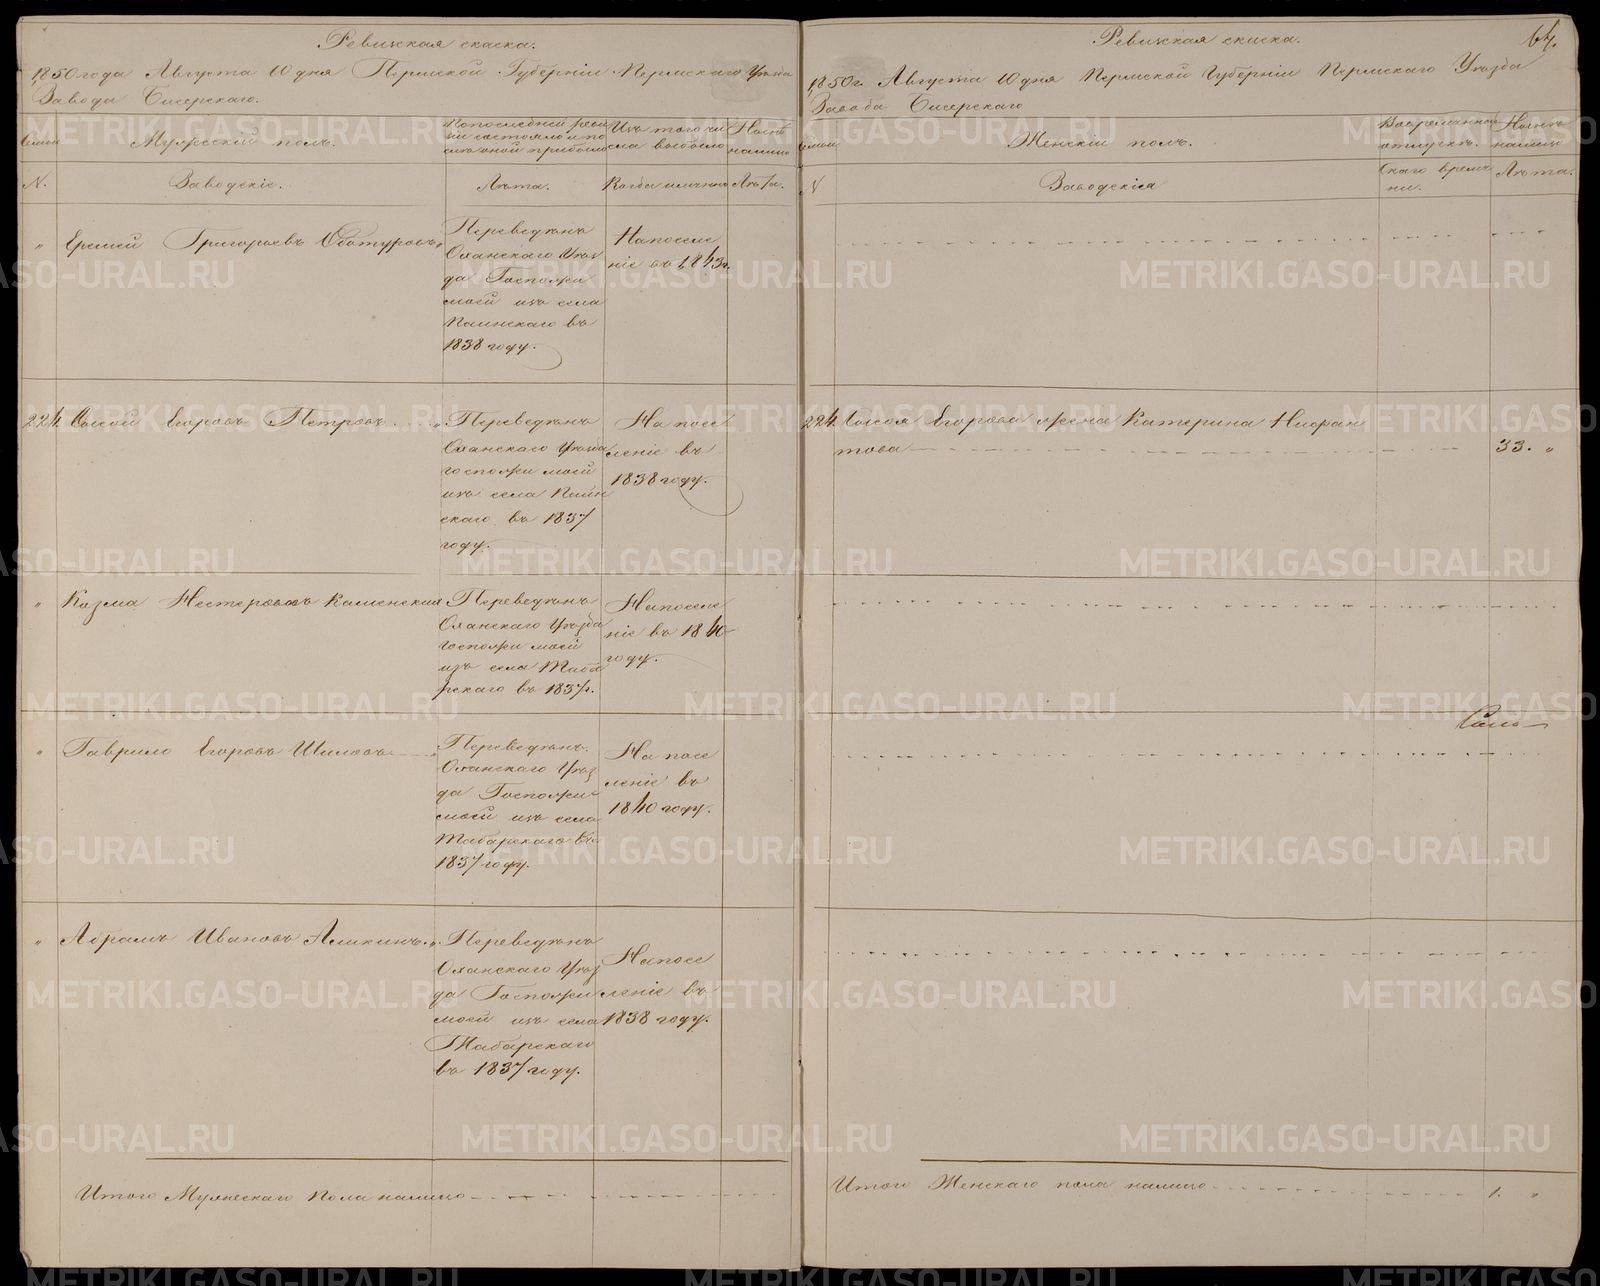 Ревизская скаска.
1850 года Августа 10 дня Пермской Губерніи Пермскаго Уѣзда
Завода Бисерскаго.
Семьи
Мужескій полъ.
По последней реви
зіи состояло и по
слѣ оной прибыло
Изъ того чи
сла выбыло
Нынѣ
на лицо
N.
Заводскіе.
Лѣта.
Когда имянно
Лѣта.
" Еремей Григорьевъ Обатуровъ "
Переведѣнъ
Оханскаго Уѣз
да Госпожи
моей изъ села
Паинскаго въ
1838 году.
На поселе
ніе въ 1843 г.
224. Сысой Егоровъ Петровъ . . . . "
Переведѣнъ
Оханскаго Уѣзда
госпожи моей
изъ села Паин
скаго въ 1837
году.
На посе
леніе въ
1838 году.
" Козма Нестеровъ Каменских
Переведѣнъ
Оханскаго Уѣзда
госпожи моей
изъ села Таба
рскаго въ 1837 г.
На поселе
ніе въ 1840
году.
" Гаврило Егоровъ Шиловъ
Переведѣнъ
Оханскаго Уѣз
да Госпожи
моей изъ села
Табарскаго въ
1837 году.
На посе
леніе въ
1840 году.
" Абрамъ Ивановъ Аликинъ "
Переведѣнъ
Оханскаго Уѣз
да Госпожи
моей изъ села
Табарскаго
въ 1837 году.
На посе
леніе въ
1838 году.
Итого Мужескаго Пола налицо
Ревизская скаска.
64.
1850 г. Августа 10 дня Пермской Губерніи Пермскаго Уѣзда
Завода Бисерскаго
Семьи
Женскій полъ.
Во временной
отлучкѣ.
Нынѣ
на лицо
N
Заводскія
Скаго време
ни.
Лѣта.
224. Сысоя Егорова жена Катерина Нифан
това 33. "
Итого Женскаго пола налицо 1. "
METRIKI.GASO-URAL.RU